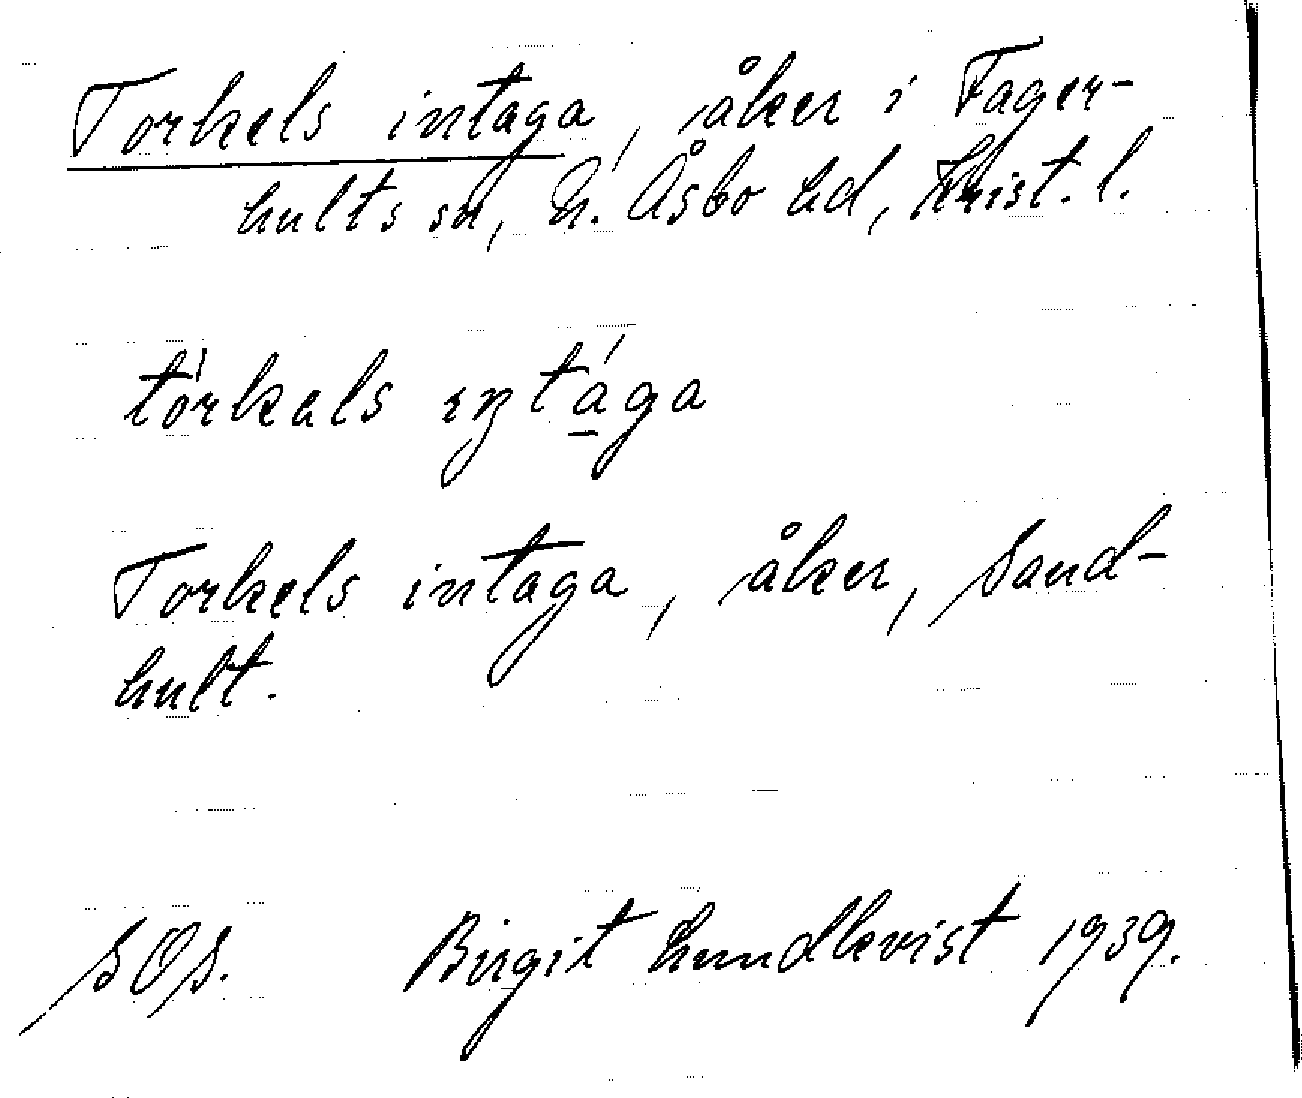 Torkels intaga, åker i Fager-
hults sn, N. Åsbo hd, Krist. l.
tòrkals ıntága
Torkels intaga, åker, Sand-
hult.
SOS. Birgit Lundkvist 1939.